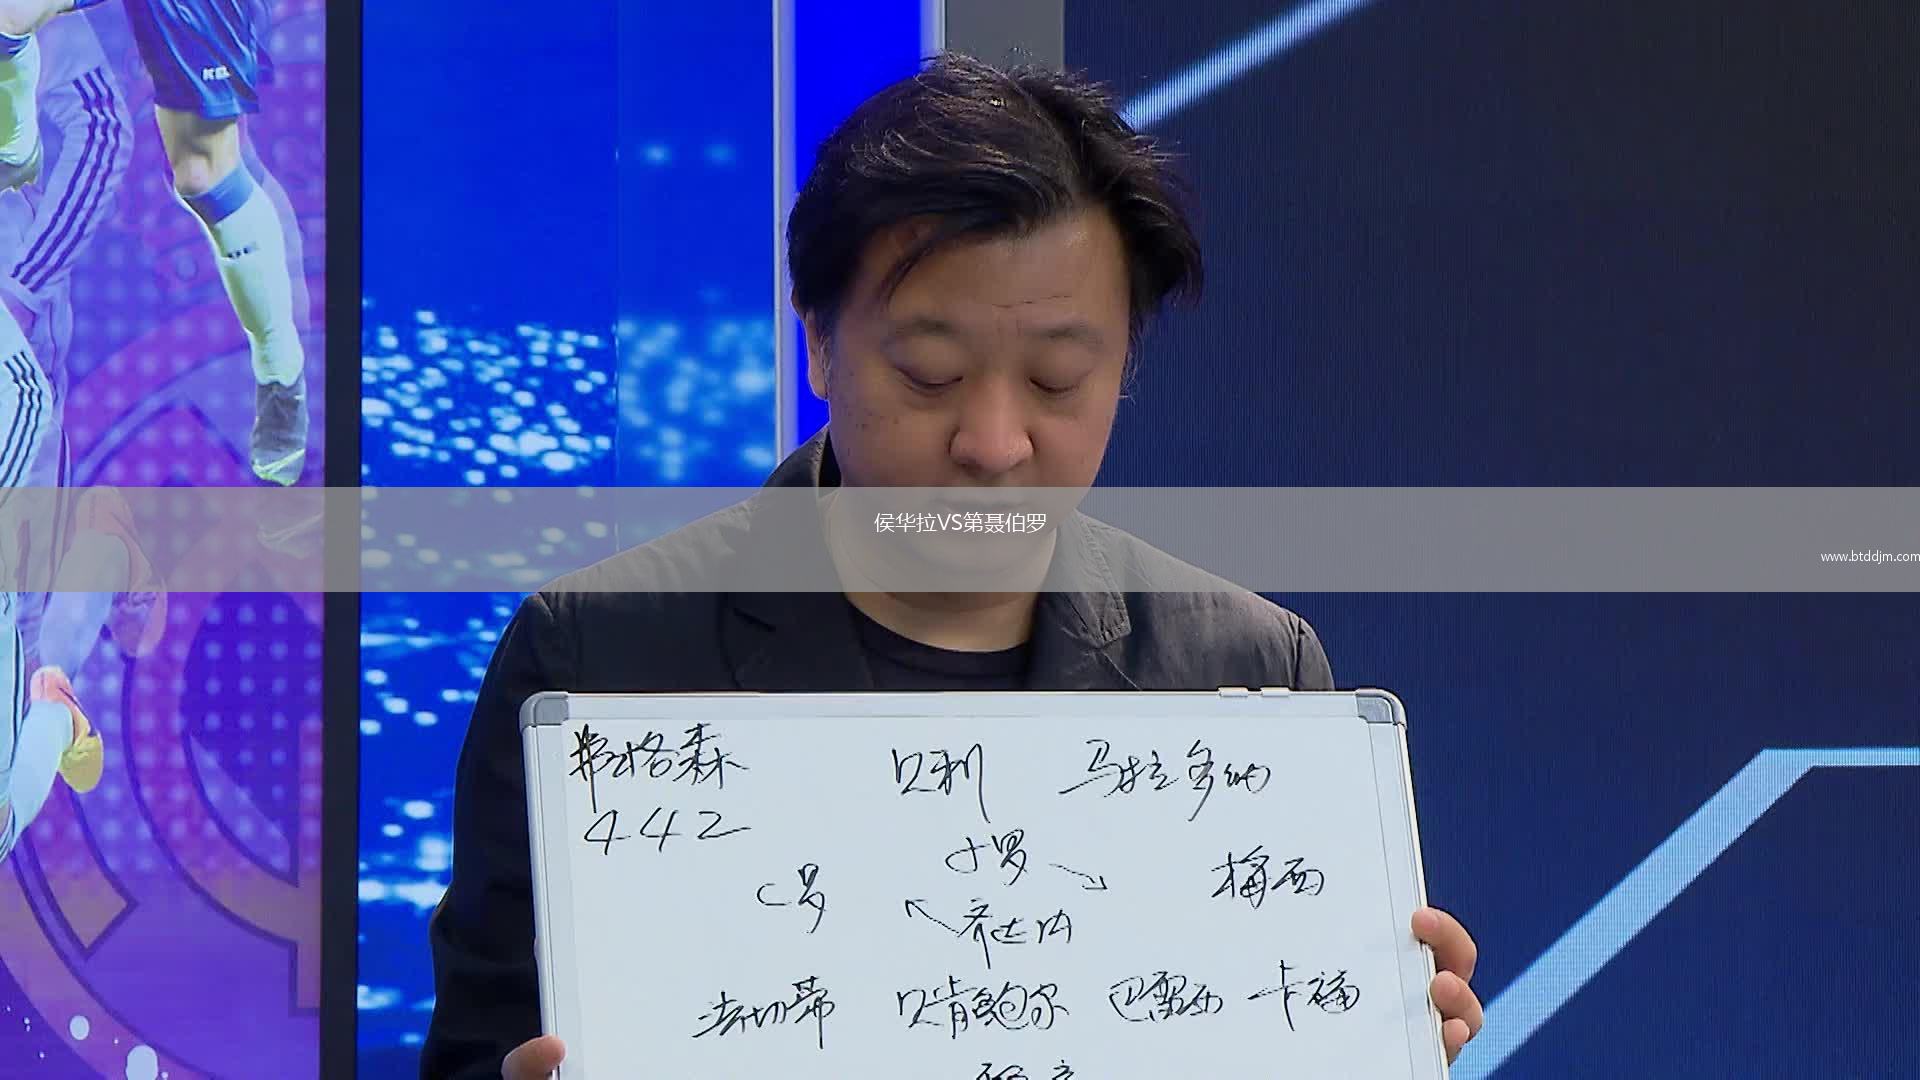 侯华拉VS第聂伯罗
www.btddjm.com
弗格森 贝利 马拉多纳
442
小罗
C罗 梅西
齐达内
法切蒂 贝肯鲍尔 巴雷西 卡福